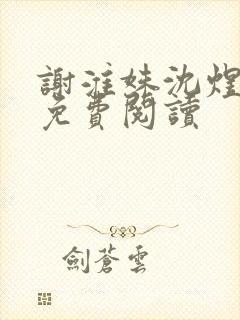 謝漼妹沈煌
免費閱讀
劍蒼雲